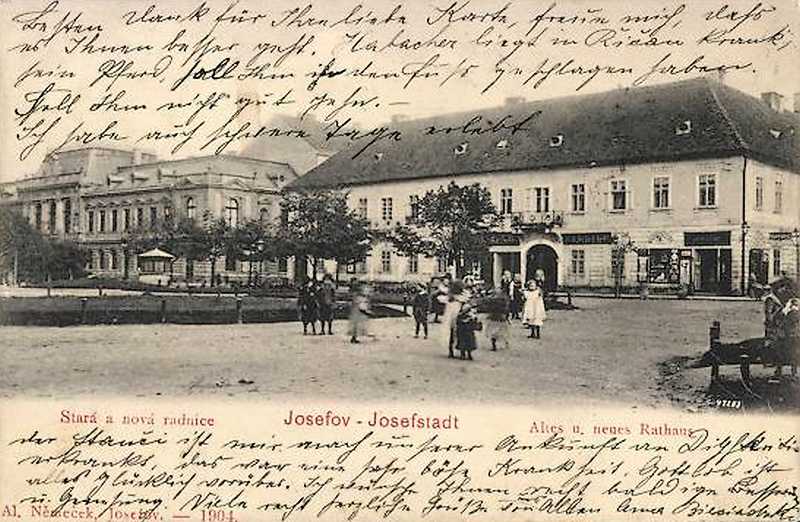 Besten Dank für Ihre liebe Karte, freue mich, dass
es Ihnen besser geht. Habacher liegt in Řičan krank,
sein Pferd, soll Ihm in den Fuss geschlagen haben.
Soll Ihm nicht gut gehn. —
Ich habe auch schwere Tage erlebt
Stará a nová radnice
Josefov - Josefstadt
Altes u. neues Rathaus
47283
der Stanči ist mir nach unserer Ankunft an Diphterit
erkrankt, das war eine sehr böse Krankheit, Gottlob ist
alles glücklich vorüber. Ich wünsche Ihnen recht baldige
u. Genesung Viele recht herzliche Grüße von Allen Anna
Al. Němeček, Josefov. — 1904.